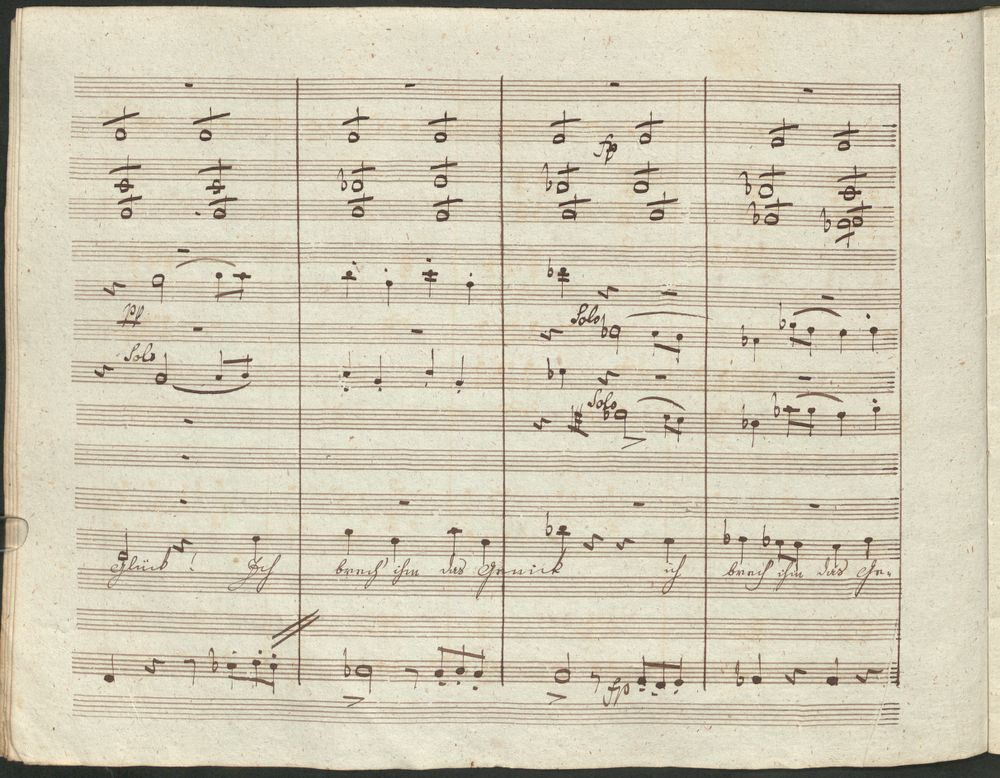 fp
Solo
Solo
Solo
Glück! Ich brech' ihm das Genick ich brech ihm das Ge-
fp